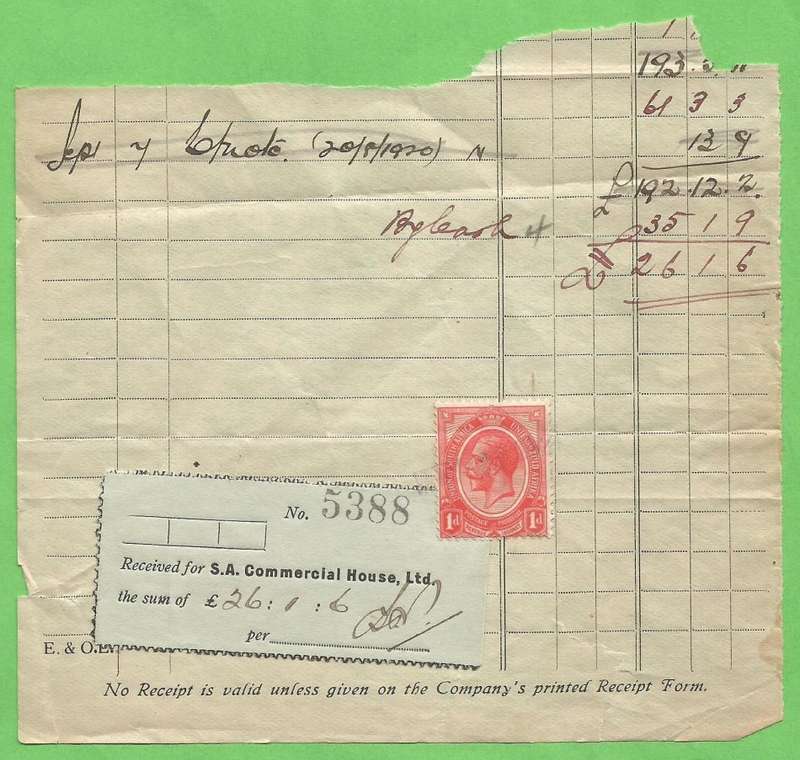 193
61 3 3
(20/8/1920) 13 9
£ 192.12.2.
By Cash 35 1 9
£ 26 1 6
UNION OF SOUTH AFRICA
1d 1d
No. 5388
Received for S.A. Commercial House, Ltd.
the sum of £ 26 : 1 : 6
per
E. & O.E.
No Receipt is valid unless given on the Company's printed Receipt Form.